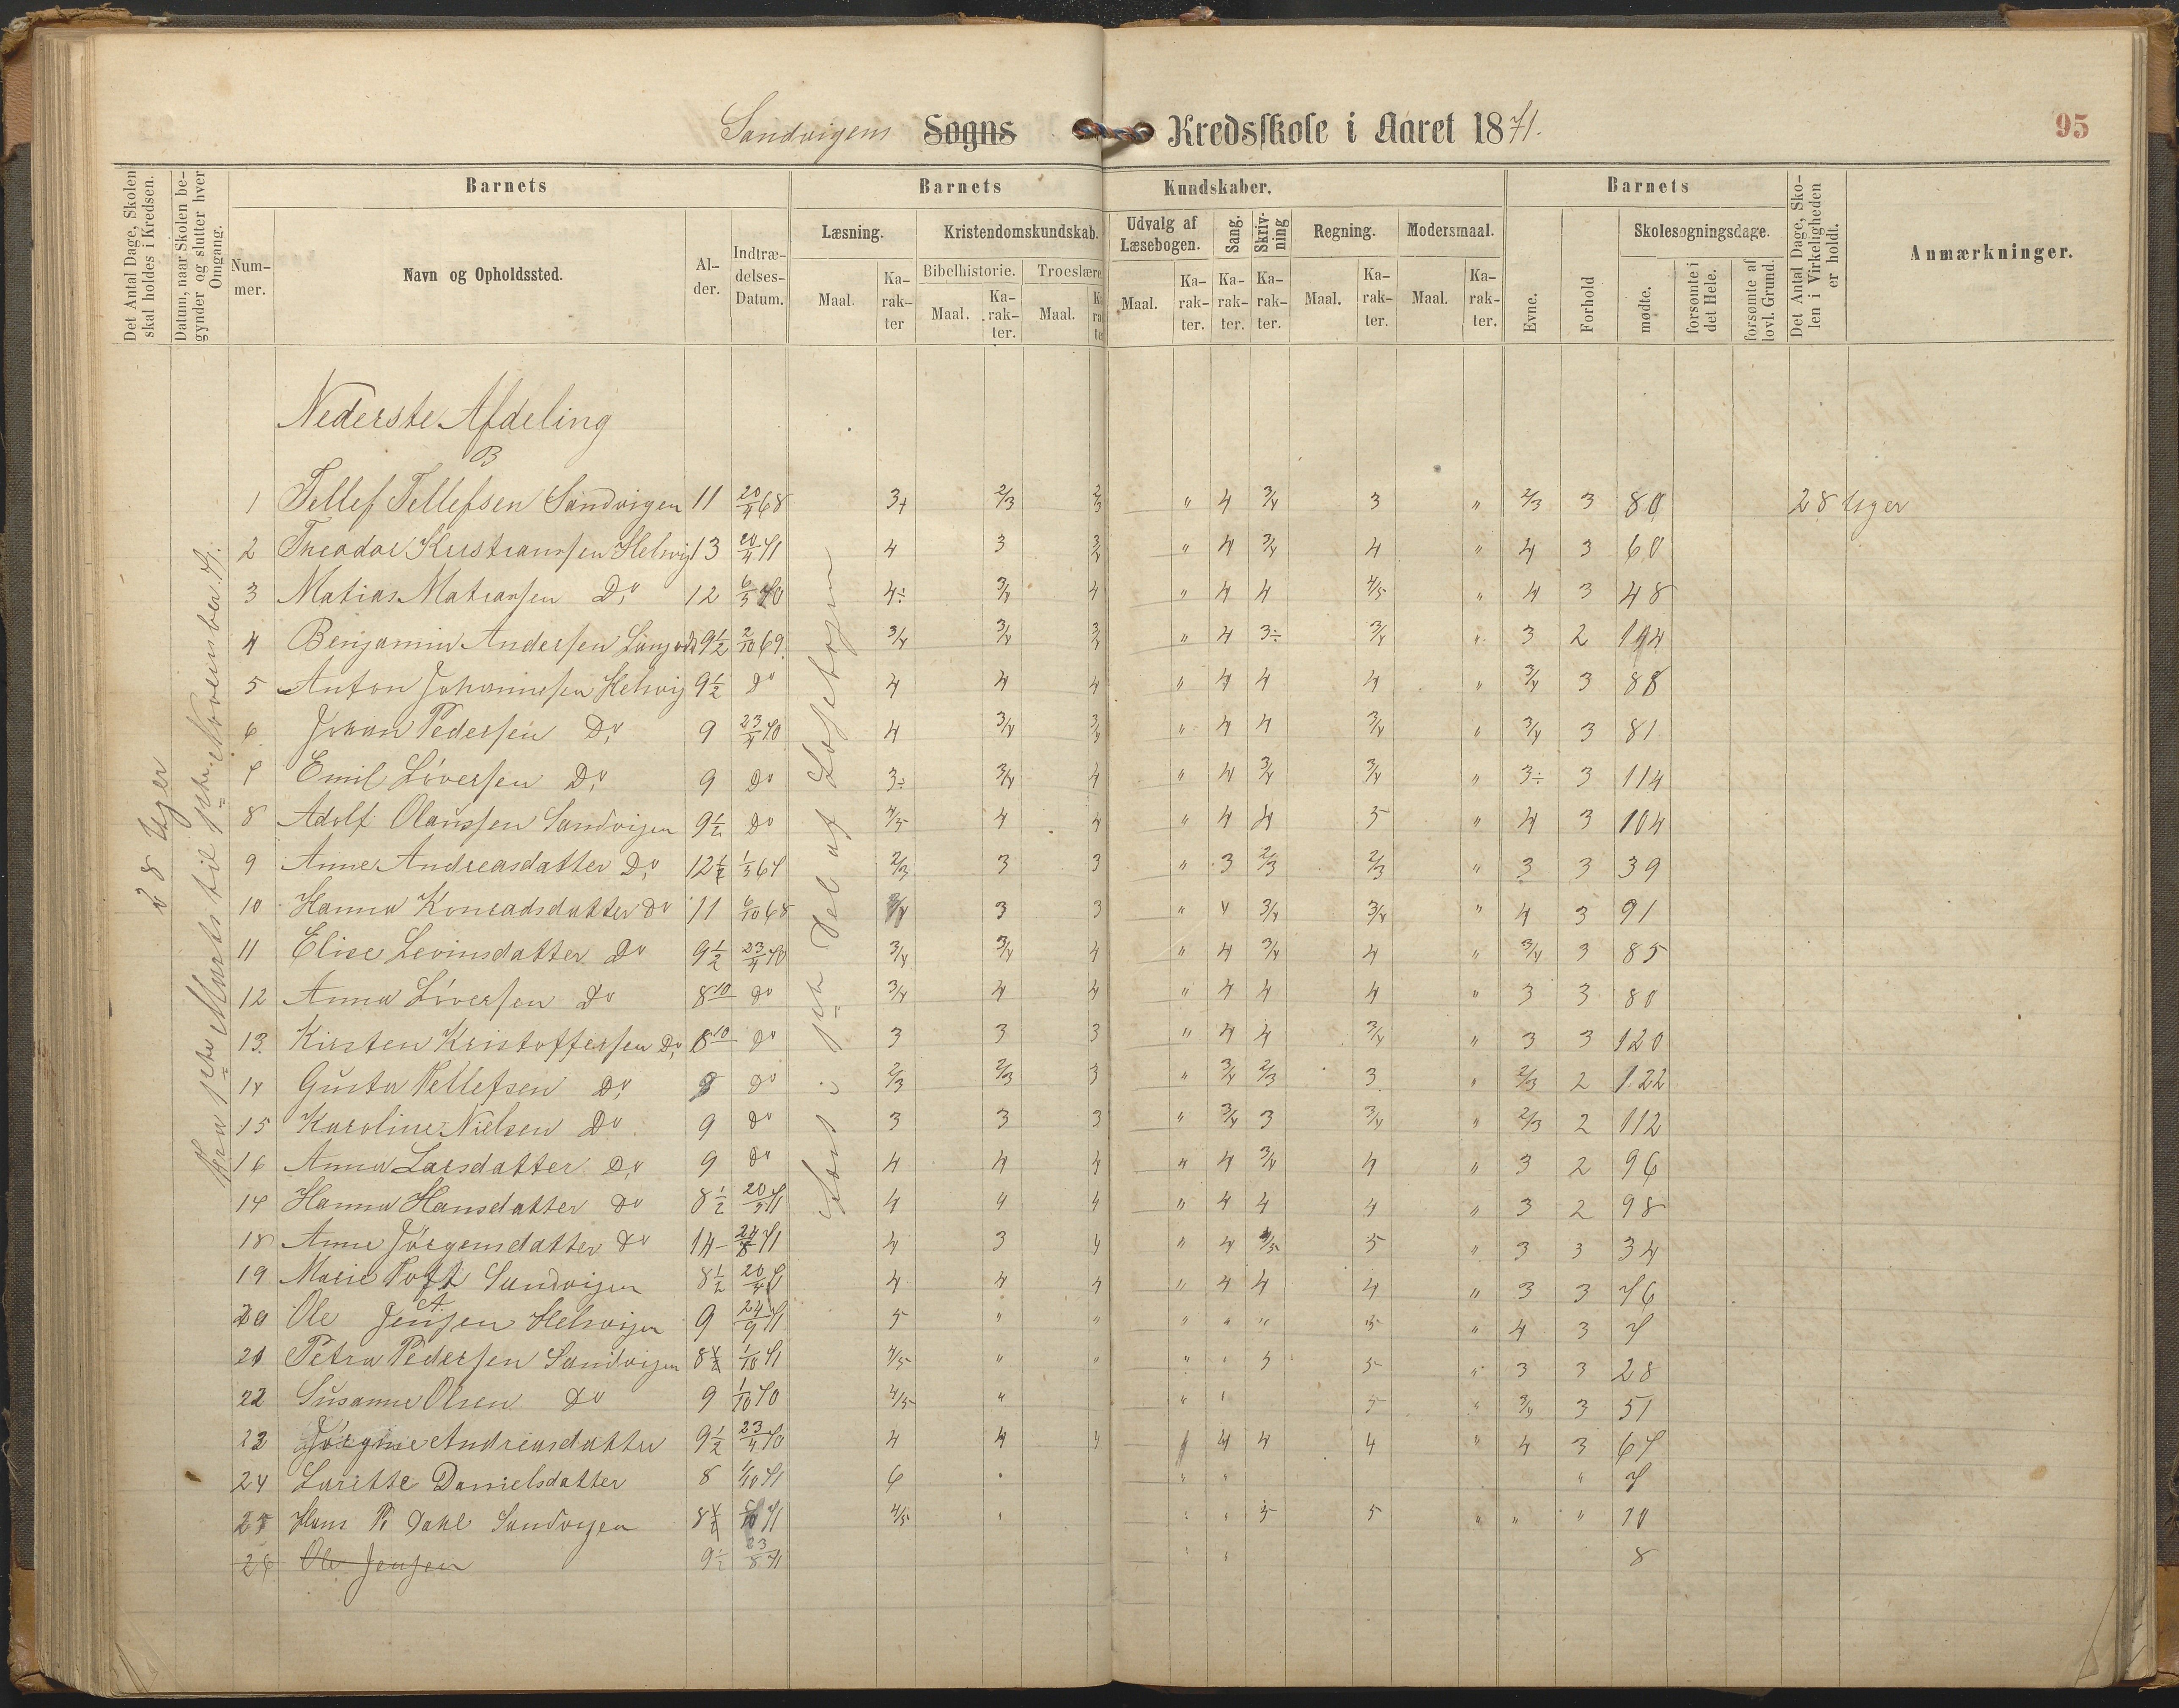 Sandvigens Sogns Kredsskole i Aaret 1871.
95
Det Antal Dage, Skolen skal holdes i Kredsen.
Datum, naar Skolen begynder og slutter hver Omgang.
Barnets
Barnets Kundskaber.
Barnets
Det Antal Dage, Skolen i Virkeligheden er holdt.
Anmærkninger.
Nummer.
Navn og Opholdssted.
Alder.
Indtrædelses-Datum.
Læsning.
Kristendomskundskab.
Udvalg af Læsebogen.
Sang.
Skrivning
Regning.
Modersmaal.
Evne.
Forhold
Skolesøgningsdage.
Bibelhistorie.
Troeslære
Maal.
Karakter
Maal.
Karakter.
Maal.
Karakter
Maal.
Karakter.
Karakter.
Karakter.
Maal.
Karakter.
Maal.
Karakter.
mødte.
forsømte i det Hele.
forsømte af lovl. Grund.
28 Uger
Fra 1ste Marts til 1ste November 71.
Nederste Afdeling
B
1 Tellef Tellefsen Sandvigen 11 20/4 68 3+ 2/3 2/3 " 4 3/4 3 " 2/3 3 80 28 Uger
2 Theodor Kristiansen Helvig 13 20/4 71 4 3 3/4 " 4 3/4 4 " 4 3 60
3 Matias Matiassen Do 12 6/5 70 4÷ 3/4 4 " 4 4 4/5 " 4 3 48
4 Benjamin Andersen 9½ 2/10 69 3/4 3/4 3/4 " 4 3÷ 3/4 " 3 2 114
5 Anton Johannesen Helvig 9½ do 4 4 4 " 4 4 4 " 3/4 3 88
6 Johan Pedersen Do 9 23/4 70 4 3/4 3/4 " 4 4 3/4 " 3/4 3 81
7 Emil Siversen Do 9 do 3÷ 3/4 4 " 4 3/4 3/4 " 3÷ 3 114
8 Adolf Olaussen Sandvigen 9½ do 4/5 4 4 " 4 4 5 " 4 3 104
9 Anne Andreasdatter Do 12½ 1/5 67 2/3 3 3 " 3 2/3 2/3 " 3 3 39
10 Hanna Konradsdatter do 11 6/10 68 3/4 3 3 " 4 3/4 3/4 " 4 3 91
11 Elise Levinsdatter do 9½ 23/4 70 3/4 3/4 4 " 4 3/4 4 " 3/4 3 85
12 Anna Siversen do 8 10 do 3/4 4 4 " 4 4 4 " 3 3 80
13. Kirsten Kristoffersen Do 8 10 do 3 3 3 " 4 4 3/4 " 3 3 120
14 Gusta Tellefsen do 9 do 2/3 2/3 3 " 3/4 2/3 3 " 2/3 2 122
15 Karoline Nielsen do 9 do 3 3 3 " 3/4 3 3/4 " 2/3 2 112
16 Anna Larsdatter do 9 do 4 4 4 " 4 3/4 4 " 3 2 96
17 Hanna Hansdatter do 8½ 20/3 71 4 4 4 " 4 4 4 " 3 2 98
18 Anne Jörgensdatter do 14 24/8 71 4 3 4 " 4 4/5 5 " 3 3 34
19 Marie Sandvigen 8½ 20/4 71 4 4 4 " 4 4 4 " 3 3 76
20 Ole A. Jensen Helvigen 9 24/9 71 5 " " " " " 5 " 4 3 7
21 Petra Pedersen Sandvigen 8½ 1/10 71 4/5 " " " " 5 5 " 3 3 28
22 Susanne Olsen do 9 1/10 70 4/5 " " " 5 " 3/4 3 51
23 Jörgine Andreasdatter 9½ 23/4 70 4 4 4 4 4 4 " 4 3 67
24 Laritte Danielsdatter 8 1/10 71 6 " " " " 7
25 Hans P. Dahl Sandvigen 8½ 71 4/5 " " " 5 5 " " " 10
26 Ole Jensen 9½ 23/8 71 " " 8
Sand: 1ste Del af Læsebogen